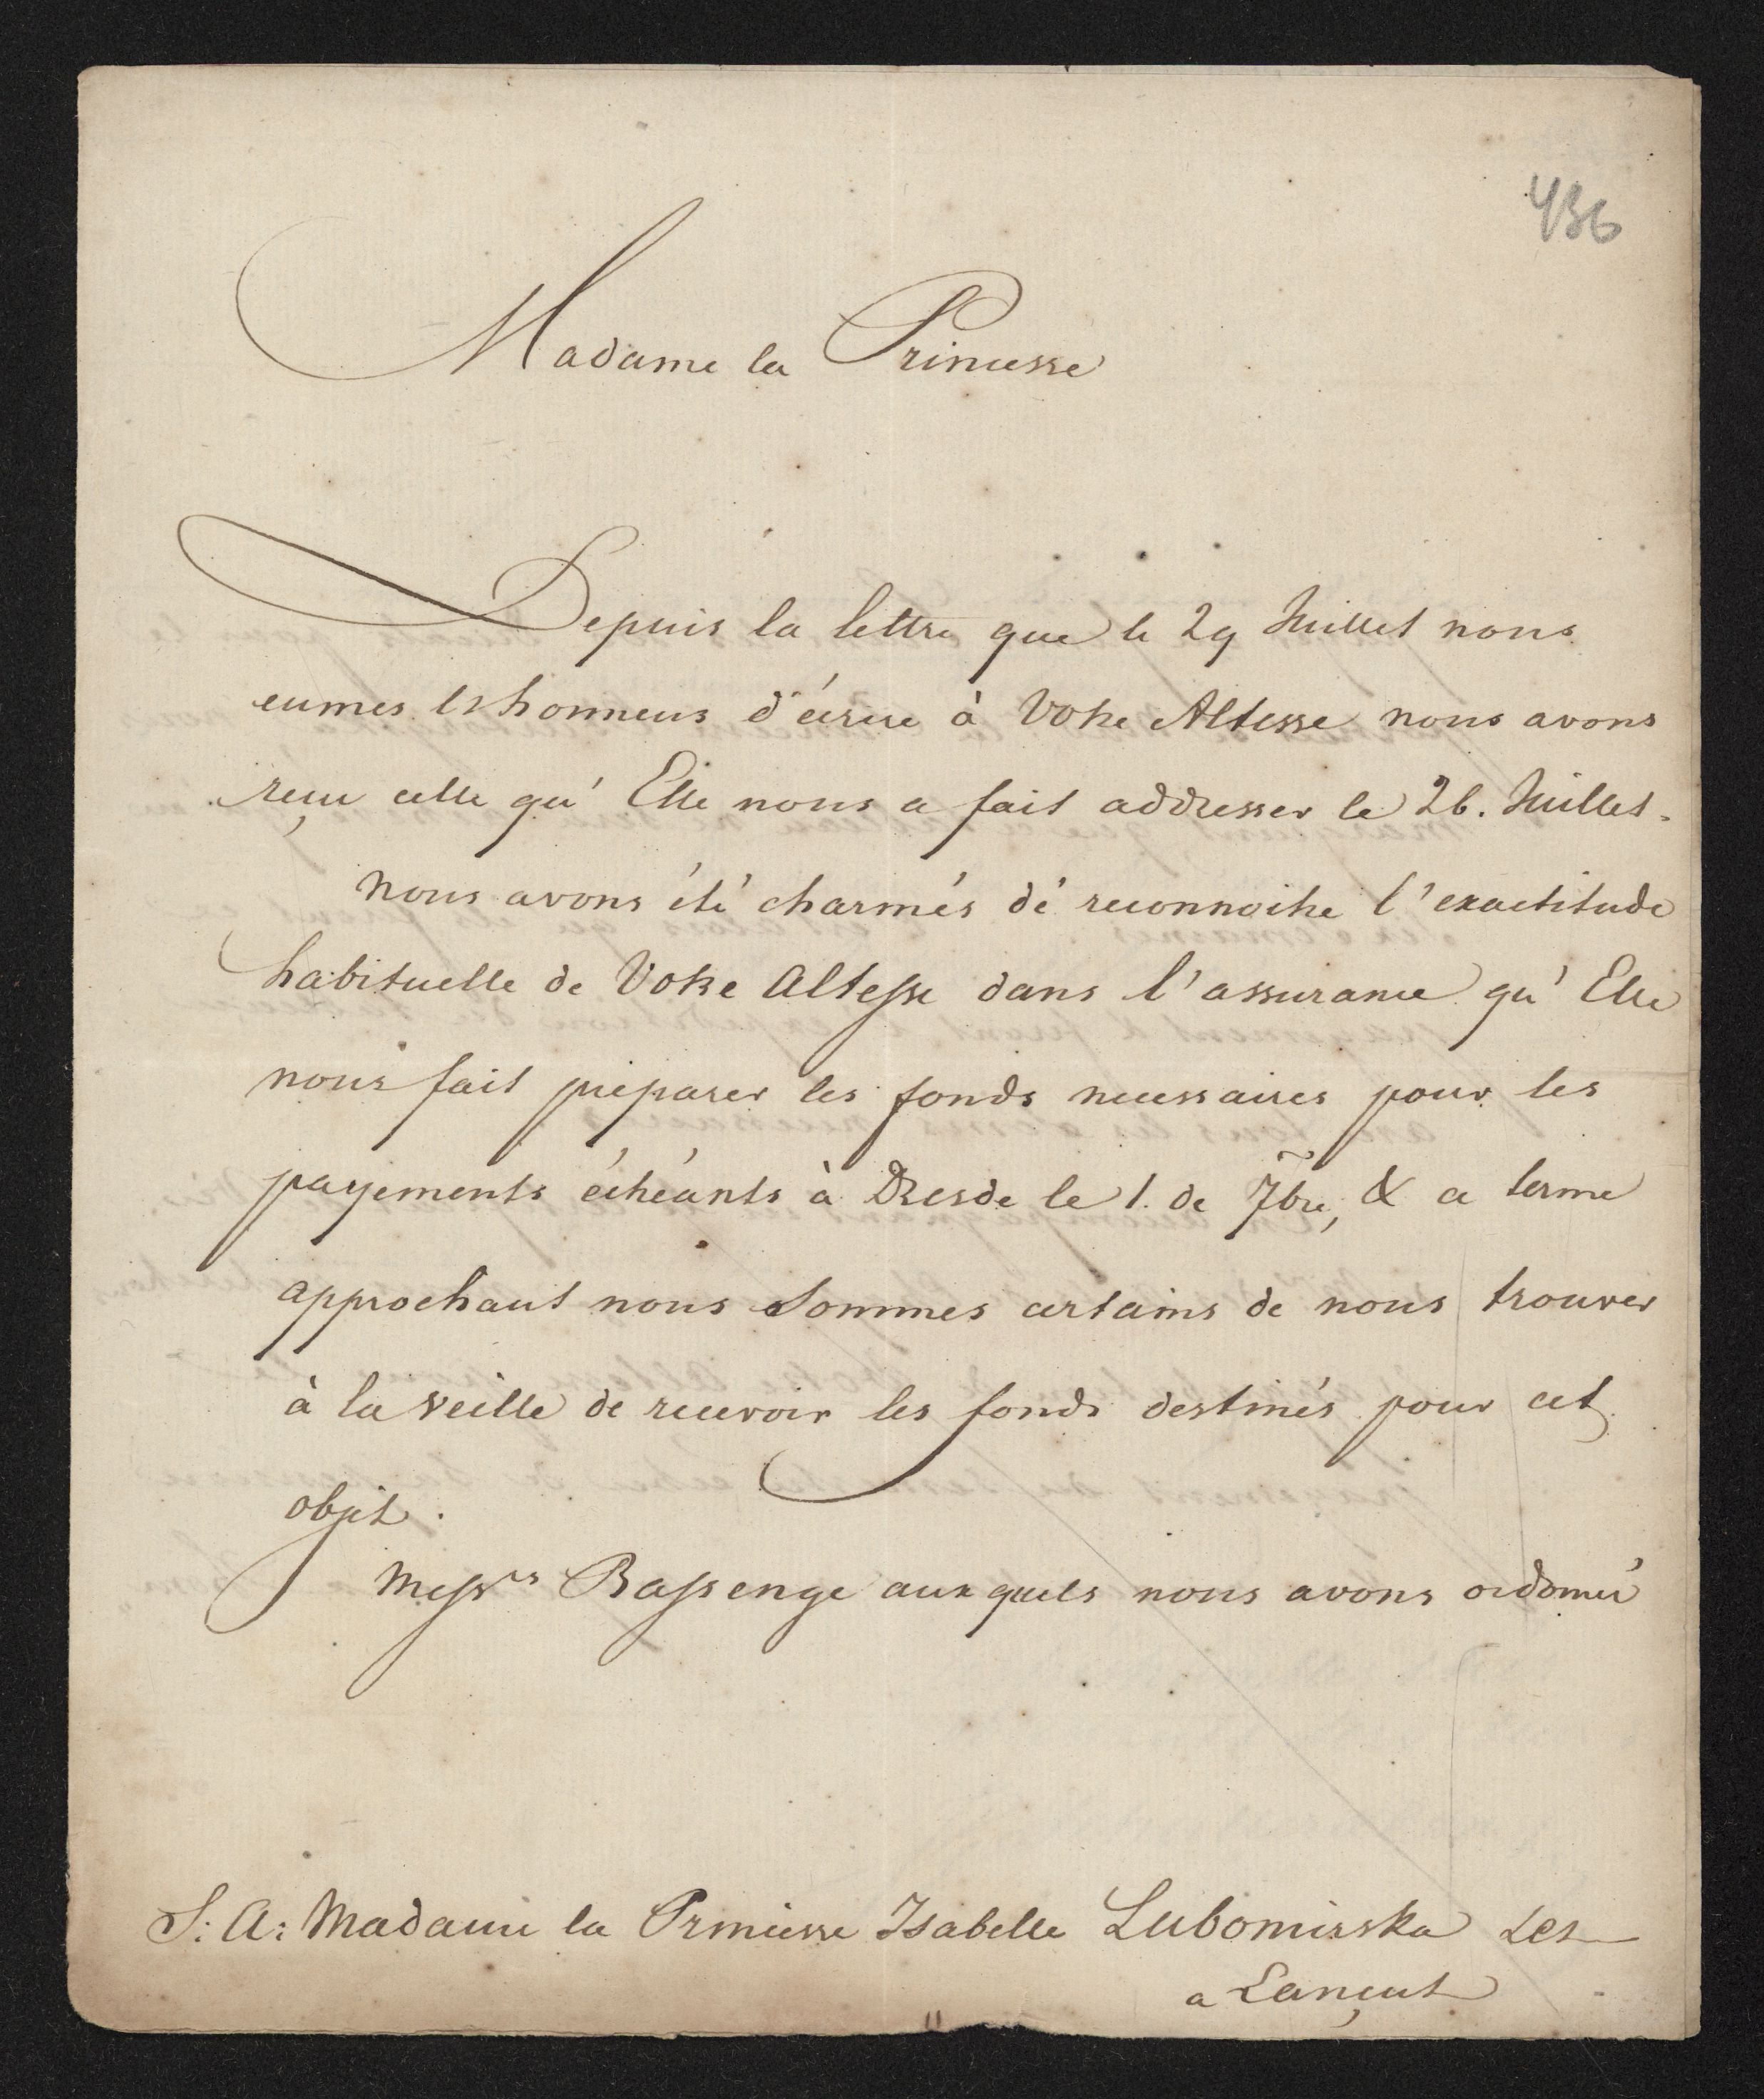 436
Madame la Princesse
Depuis la lettre que le 29 Juillet nous
eumes l'honneur d'écrire à Votre Altesse nous avons
reçu celle qu'Elle nous a fait addresser le 26. Juillet.
Nous avons été charmés de reconnoitre l'exactitude
habituelle de Votre Altesse dans l'assurance qu'Elle
nous fait préparer les fonds necessaires pour les
payements échéants à Dresde le 1. de 7bre, & ce terme
approchant nous sommes certains de nous trouver
à la veille de recevoir les fonds destinés pour cet
objet.
Messrs Bassenge auxquels nous avons ordonné
S: A: Madame la Princesse Isabelle Lubomirska
a Lançut